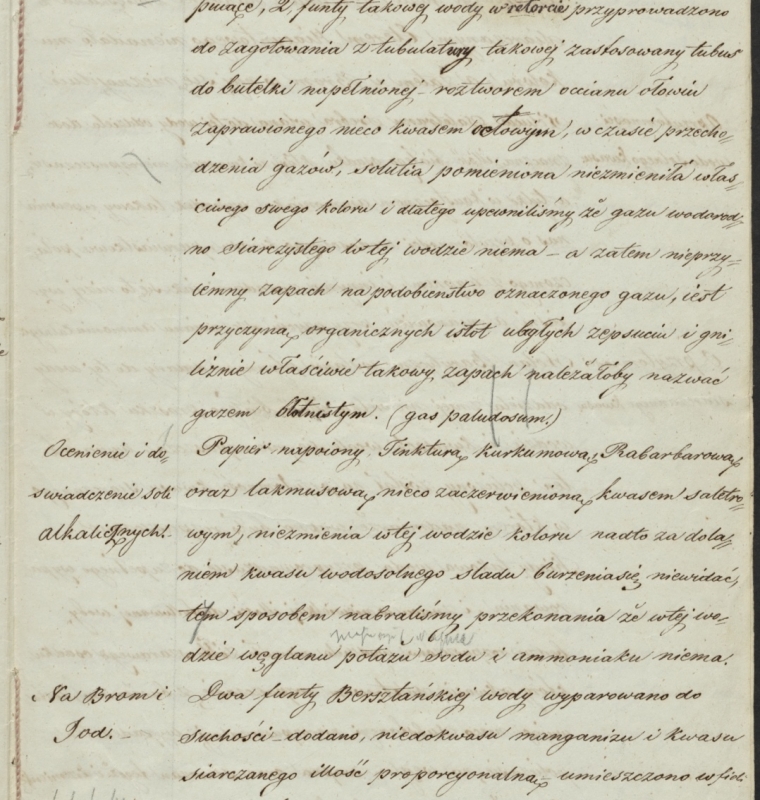 pująće, 2. funty takowej wody w retorcie przyprowadzono
do zagotowania z tubulatury takowej zastosowany tubus
do butelki napełnionej roztworem occianu ołowiu
zaprawionego nieco kwasem octowym, w czasie przecho-
dzenia gazów, solutia pomieniona niezmieniła właś-
ciwego swego koloru i dlatego upewniliśmy że gazu wodorod-
no Siarczystego w tej wodzie niema – a zatem nieprzy-
iemny zapach na podobienstwo oznaczonego gazu, iest
przyczyną organicznych istot ubgłych zepsuciu i gni-
liźnie właściwie takowy zapach należałoby nazwać
gazem błotnistym. (gas paludosum.)
Ocenienie i do-
swiadczenie soli
alkalicznych.
Papier napoiony Tinkturą kurkumową, Rabarbarową
oraz lakmusową nieco zaczerwienioną kwasem saletro-
wym, niezmienia w tej wodzie koloru nadto za dola-
niem kwasu wodosolnego sladu burzenia się niewidać,
tym sposobem nabraliśmy przekonania że w tej wo-
dzie węglanu potażu sodu i ammoniaku niema.
Na Brom i
Jod. –
Dwa funty Bersztańskiej wody wyparowano do
suchości – dodano, niedokwasu manganizu i kwasu
siarczanego illość proporcyonalną – umieszczono w